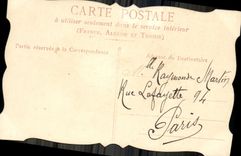 CARTE POSTALE
à utiliser seulement dans le service intérieur
(France, Algérie et Tunisie)
Partie réservée à la Correspondance
Adresse du Destinataire
M Raymonde Martin
Rue Lafayette 94
Paris